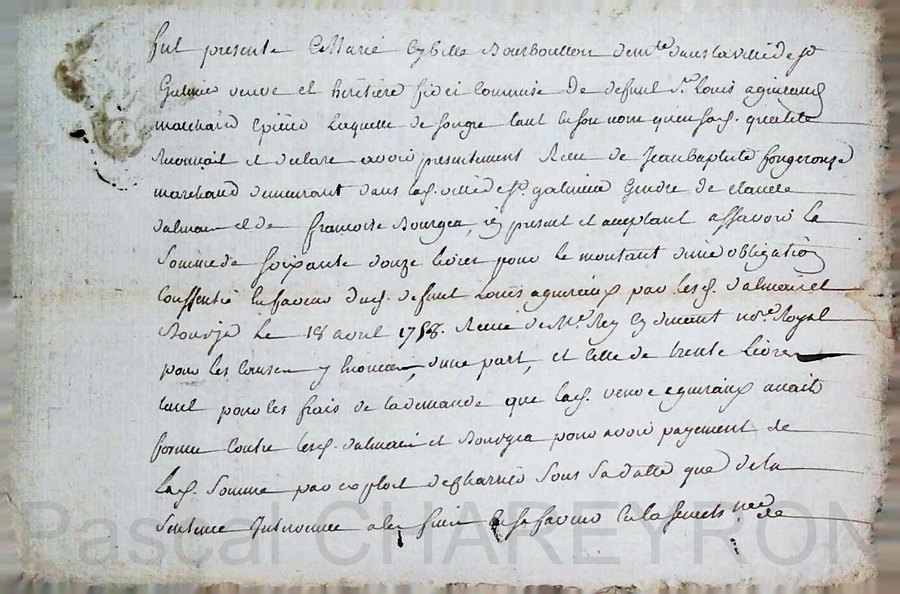 fut presente Marie Sybille Bourboullon demte dans la ville de st
Galmier veuve et héritière fidei Commise De defunt Sr. Louis agniraux
marchand Epicier Laquelle de son gre tant en son nom quen sad. qualite
Reconnait et declare avoir presentement Receu de Jean Baptiste fougerouse
marchand demeurant dans lad. ville de st. galmier Gendre de claude
dalmais et de francoise Bourgea, icy present et acceptant assavoir la
Somme de soixante douze livres pour le montant dune obligation
Conssentie en faveur dud. defunt Louis agniraux par lesd. dalmais et
Bourja Le 18 avril 1758. Receue de Me. Rey cy devant nore. Royal
pour les Causes y Enoncées, dune part, et Celle de trente Livres
tant pour les frais de la demande que lad. veuve agniraux avait
formé contre lesd. dalmais et Bourgea pour avoir payement de
Lad. somme par exploit de sous sa datte que de la
Sentence Intervenue a les fins en sa faveur en la senechée de
Pascal CHAREYRON